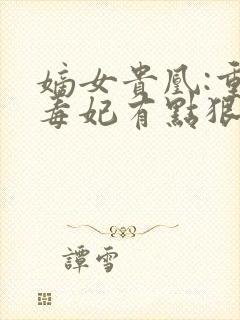 嫡女貴凰:重
毒妃有點狠
譚雪